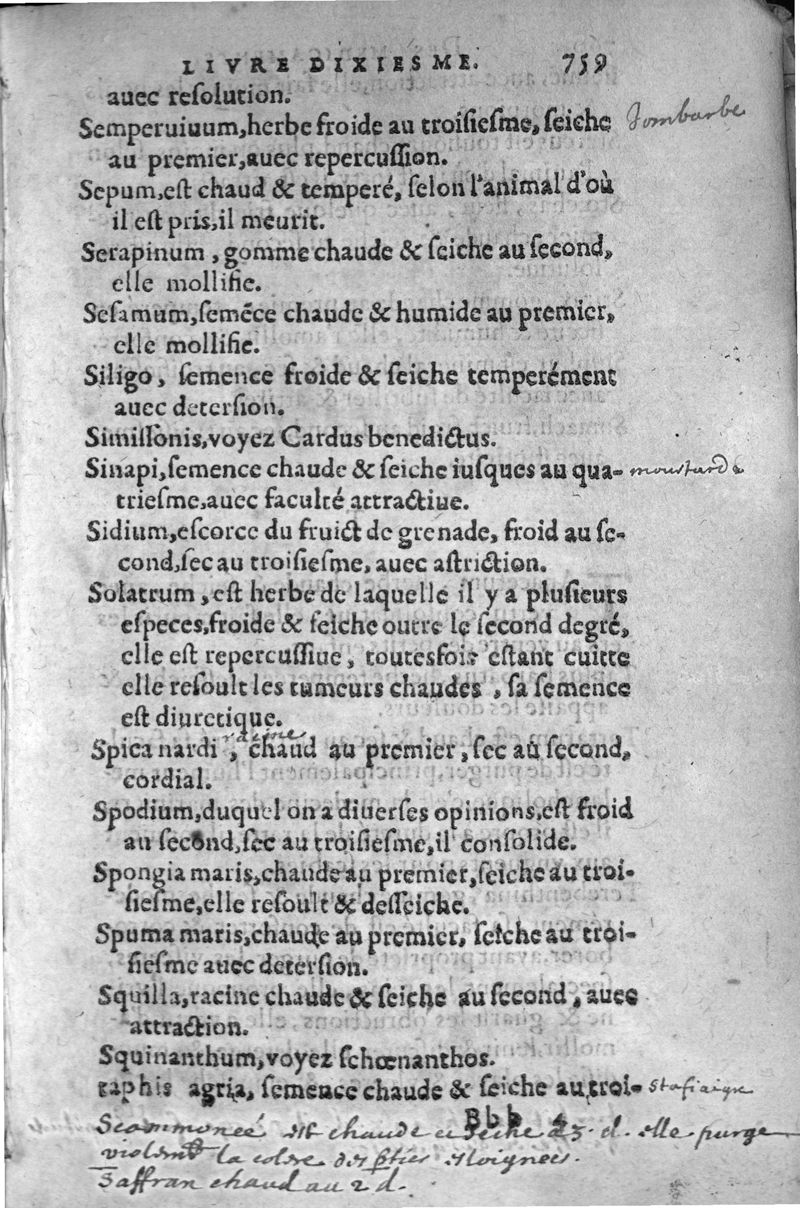 LIVRE DIXIESME. 759
auec resolution.
Semperuiuum, herbe froide au troisiesme, seiche Jombarbe
au premier, auec repercussion.
Sepum, est chaud & temperé, selon l'animal d'où
il est pris, il meurit.
Serapinum, gomme chaude & seiche au second,
elle mollifie.
Sesamum, semẽce chaude & humide au premier,
elle mollifie.
Siligo, semence froide & seiche temperément
auec detersion.
Simissonis, voyez Cardus benedictus.
Sinapi, semence chaude & seiche iusques au qua- moustarde
triesme, auec faculté attractiue.
Sidium, escorce du fruict de grenade, froid au se-
cond, sec au troisiesme, auec astriction.
Solatrum, est herbe de laquelle il y a plusieurs
especes, froide & seiche outre le second degré,
elle est repercussiue, toutesfois estant cuitte
elle resoult les tumeurs chaudes, sa semence
est diuretique.
racine
Spica nardi, chaud au premier, sec au second,
cordial.
Spodium, duquel on a diuerses opinions, est froid
au second, sec au troisiesme, il consolide.
Spongia maris, chaude au premier, seiche au troi-
siesme, elle resoult & desseiche.
Spuma maris, chaude au premier, seiche au troi-
siesme auec detersion.
Squilla, racine chaude & seiche au second, auec
attraction.
Squinanthum, voyez schœnanthos.
taphis agria, semence chaude & seiche au troi- stafiaigre
Bbb 4
Scommoneé est chaude et seiche a 3. d. elle purge
violent la colere des pties esloignees.
Saffran chaud au 2 d.